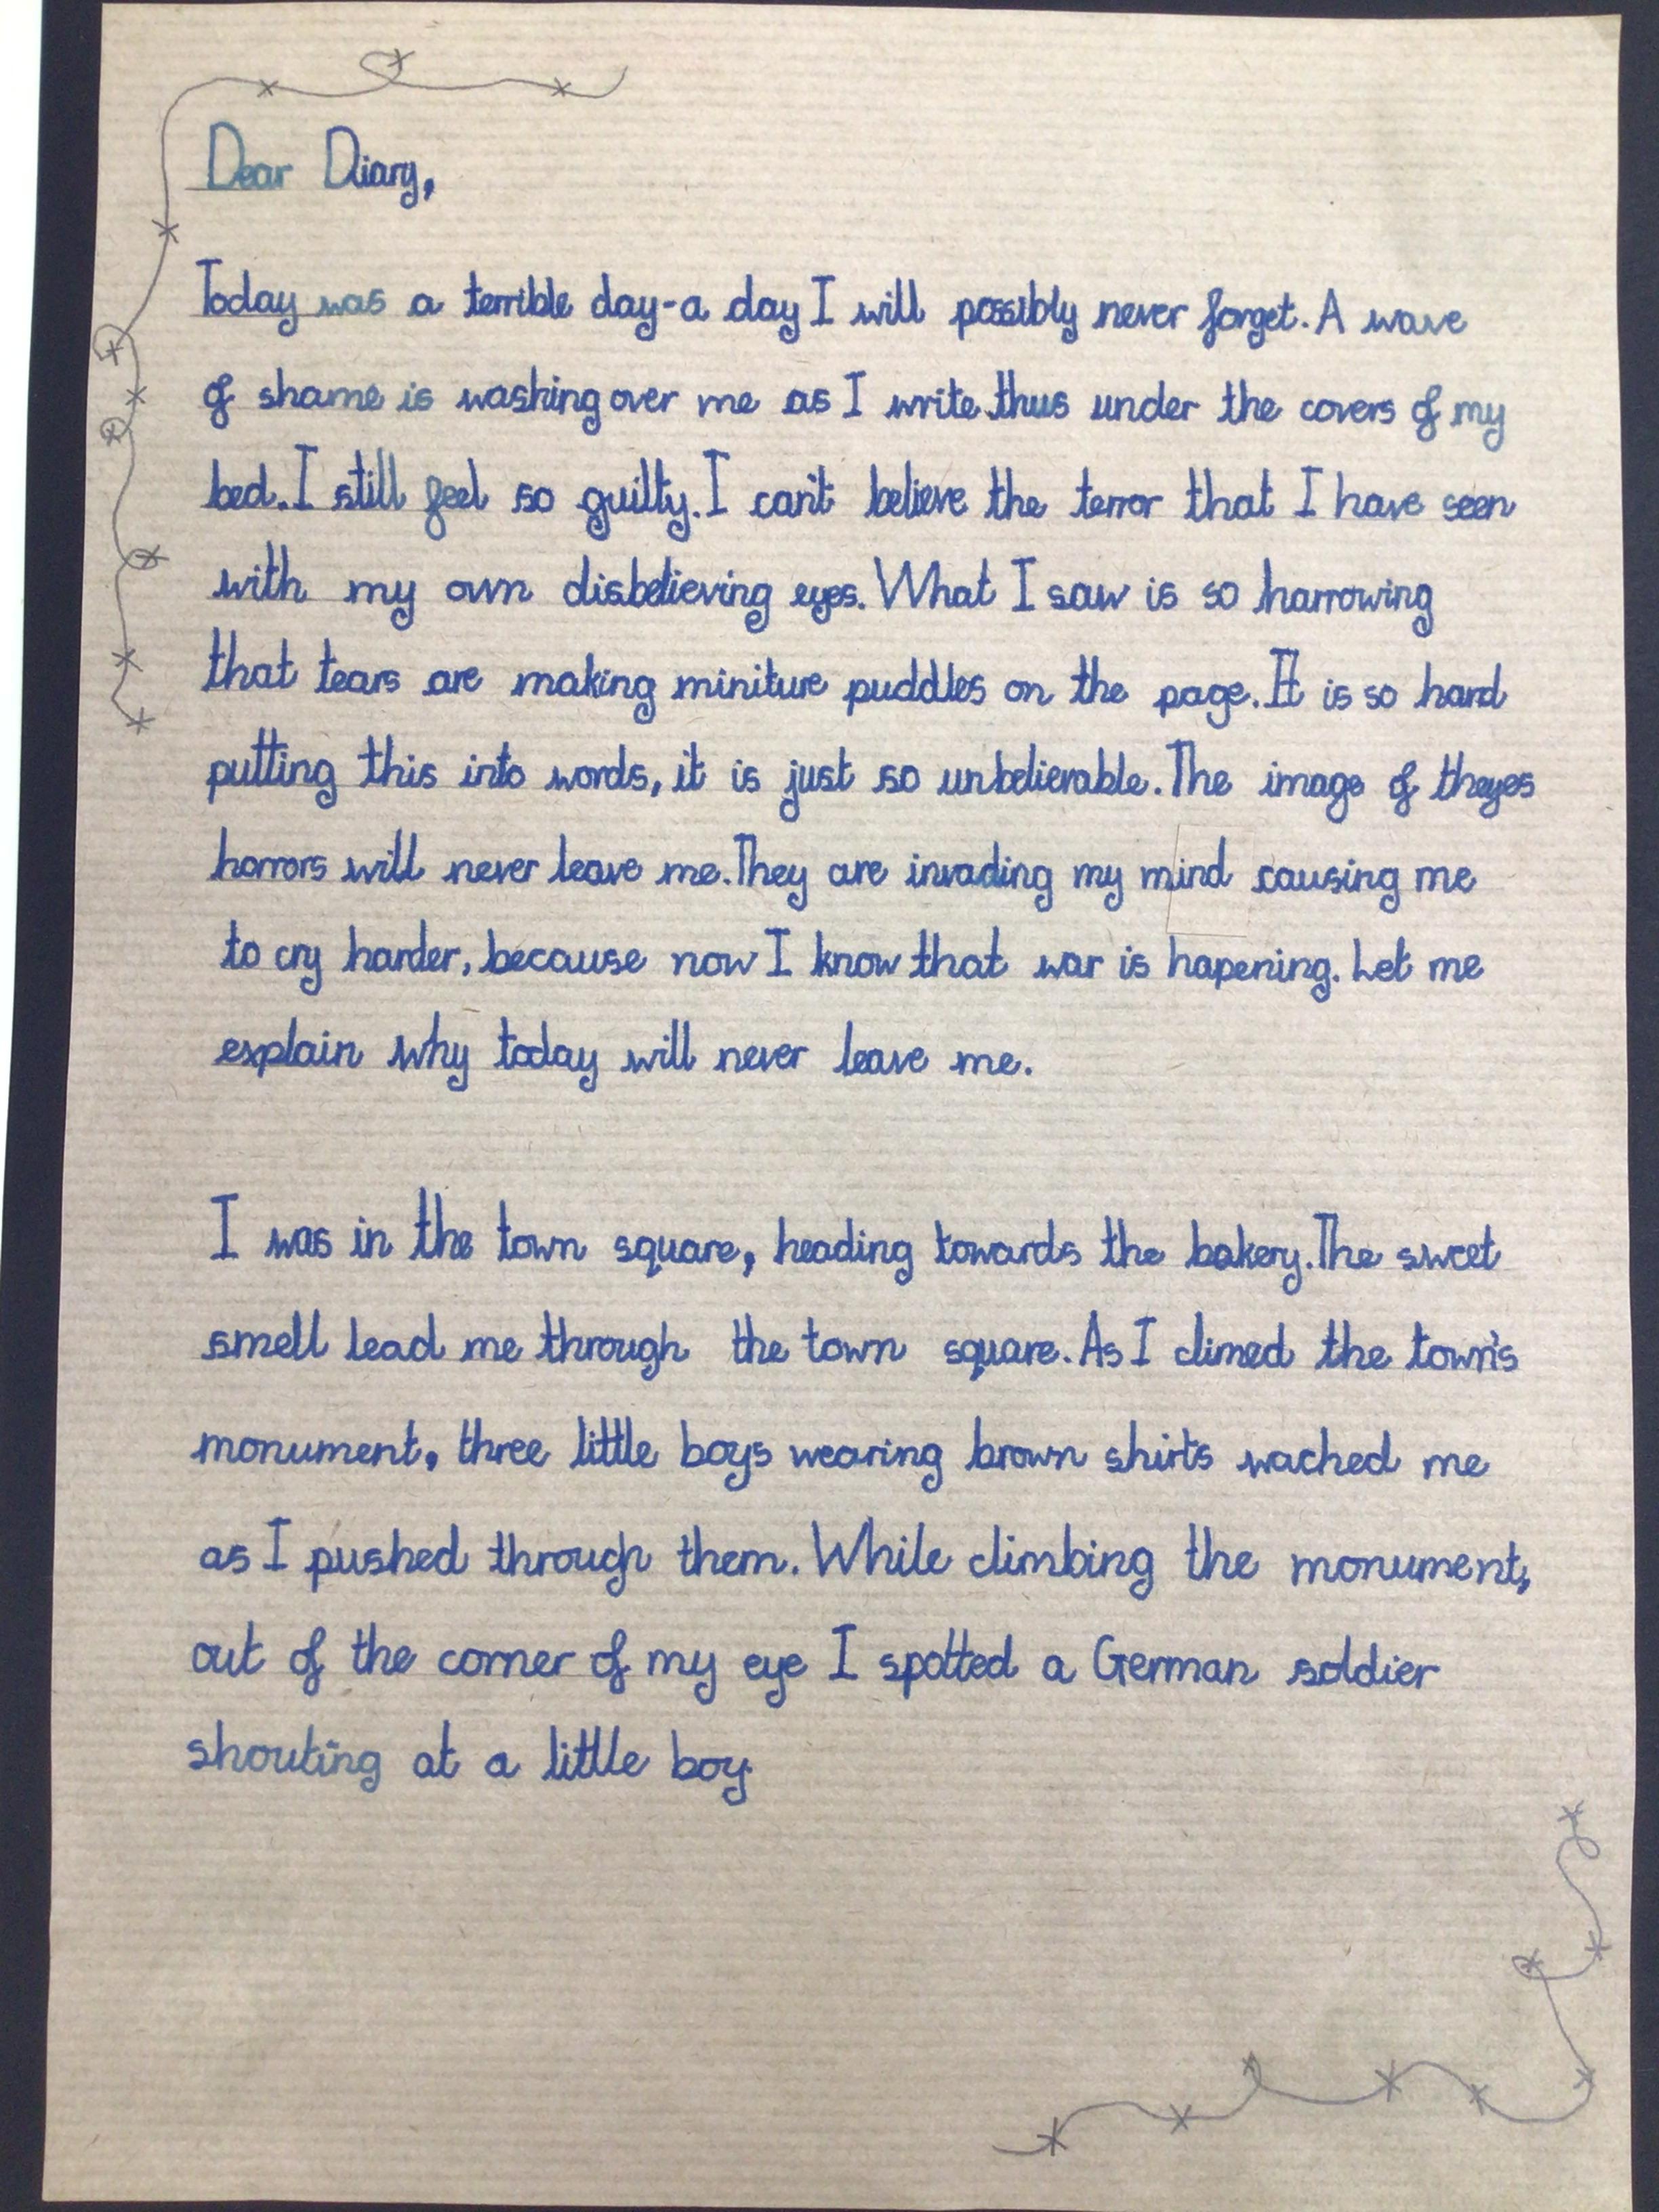 Dear Diary,
Today was a terrible day-a day I will possibly never forget. A wave
of shame is washing over me as I write thus under the covers of my
bed. I still feel so guilty. I can't believe the terror that I have seen
with my own disbelieving eyes. What I saw is so harrowing
that tears are making miniture puddles on the page. It is so hard
putting this into words, it is just so unbelievable. The image of theyes
horrors will never leave me. They are invading my mind causing me
to cry harder, because now I know that war is hapening. Let me
explain why today will never leave me.
I was in the town square, heading towards the bakery. The sweet
smell lead me through the town square. As I climed the town's
monument, three little boys wearing brown shirts wached me
as I pushed through them. While climbing the monument,
out of the corner of my eye I spotted a German soldier
shouting at a little boy.